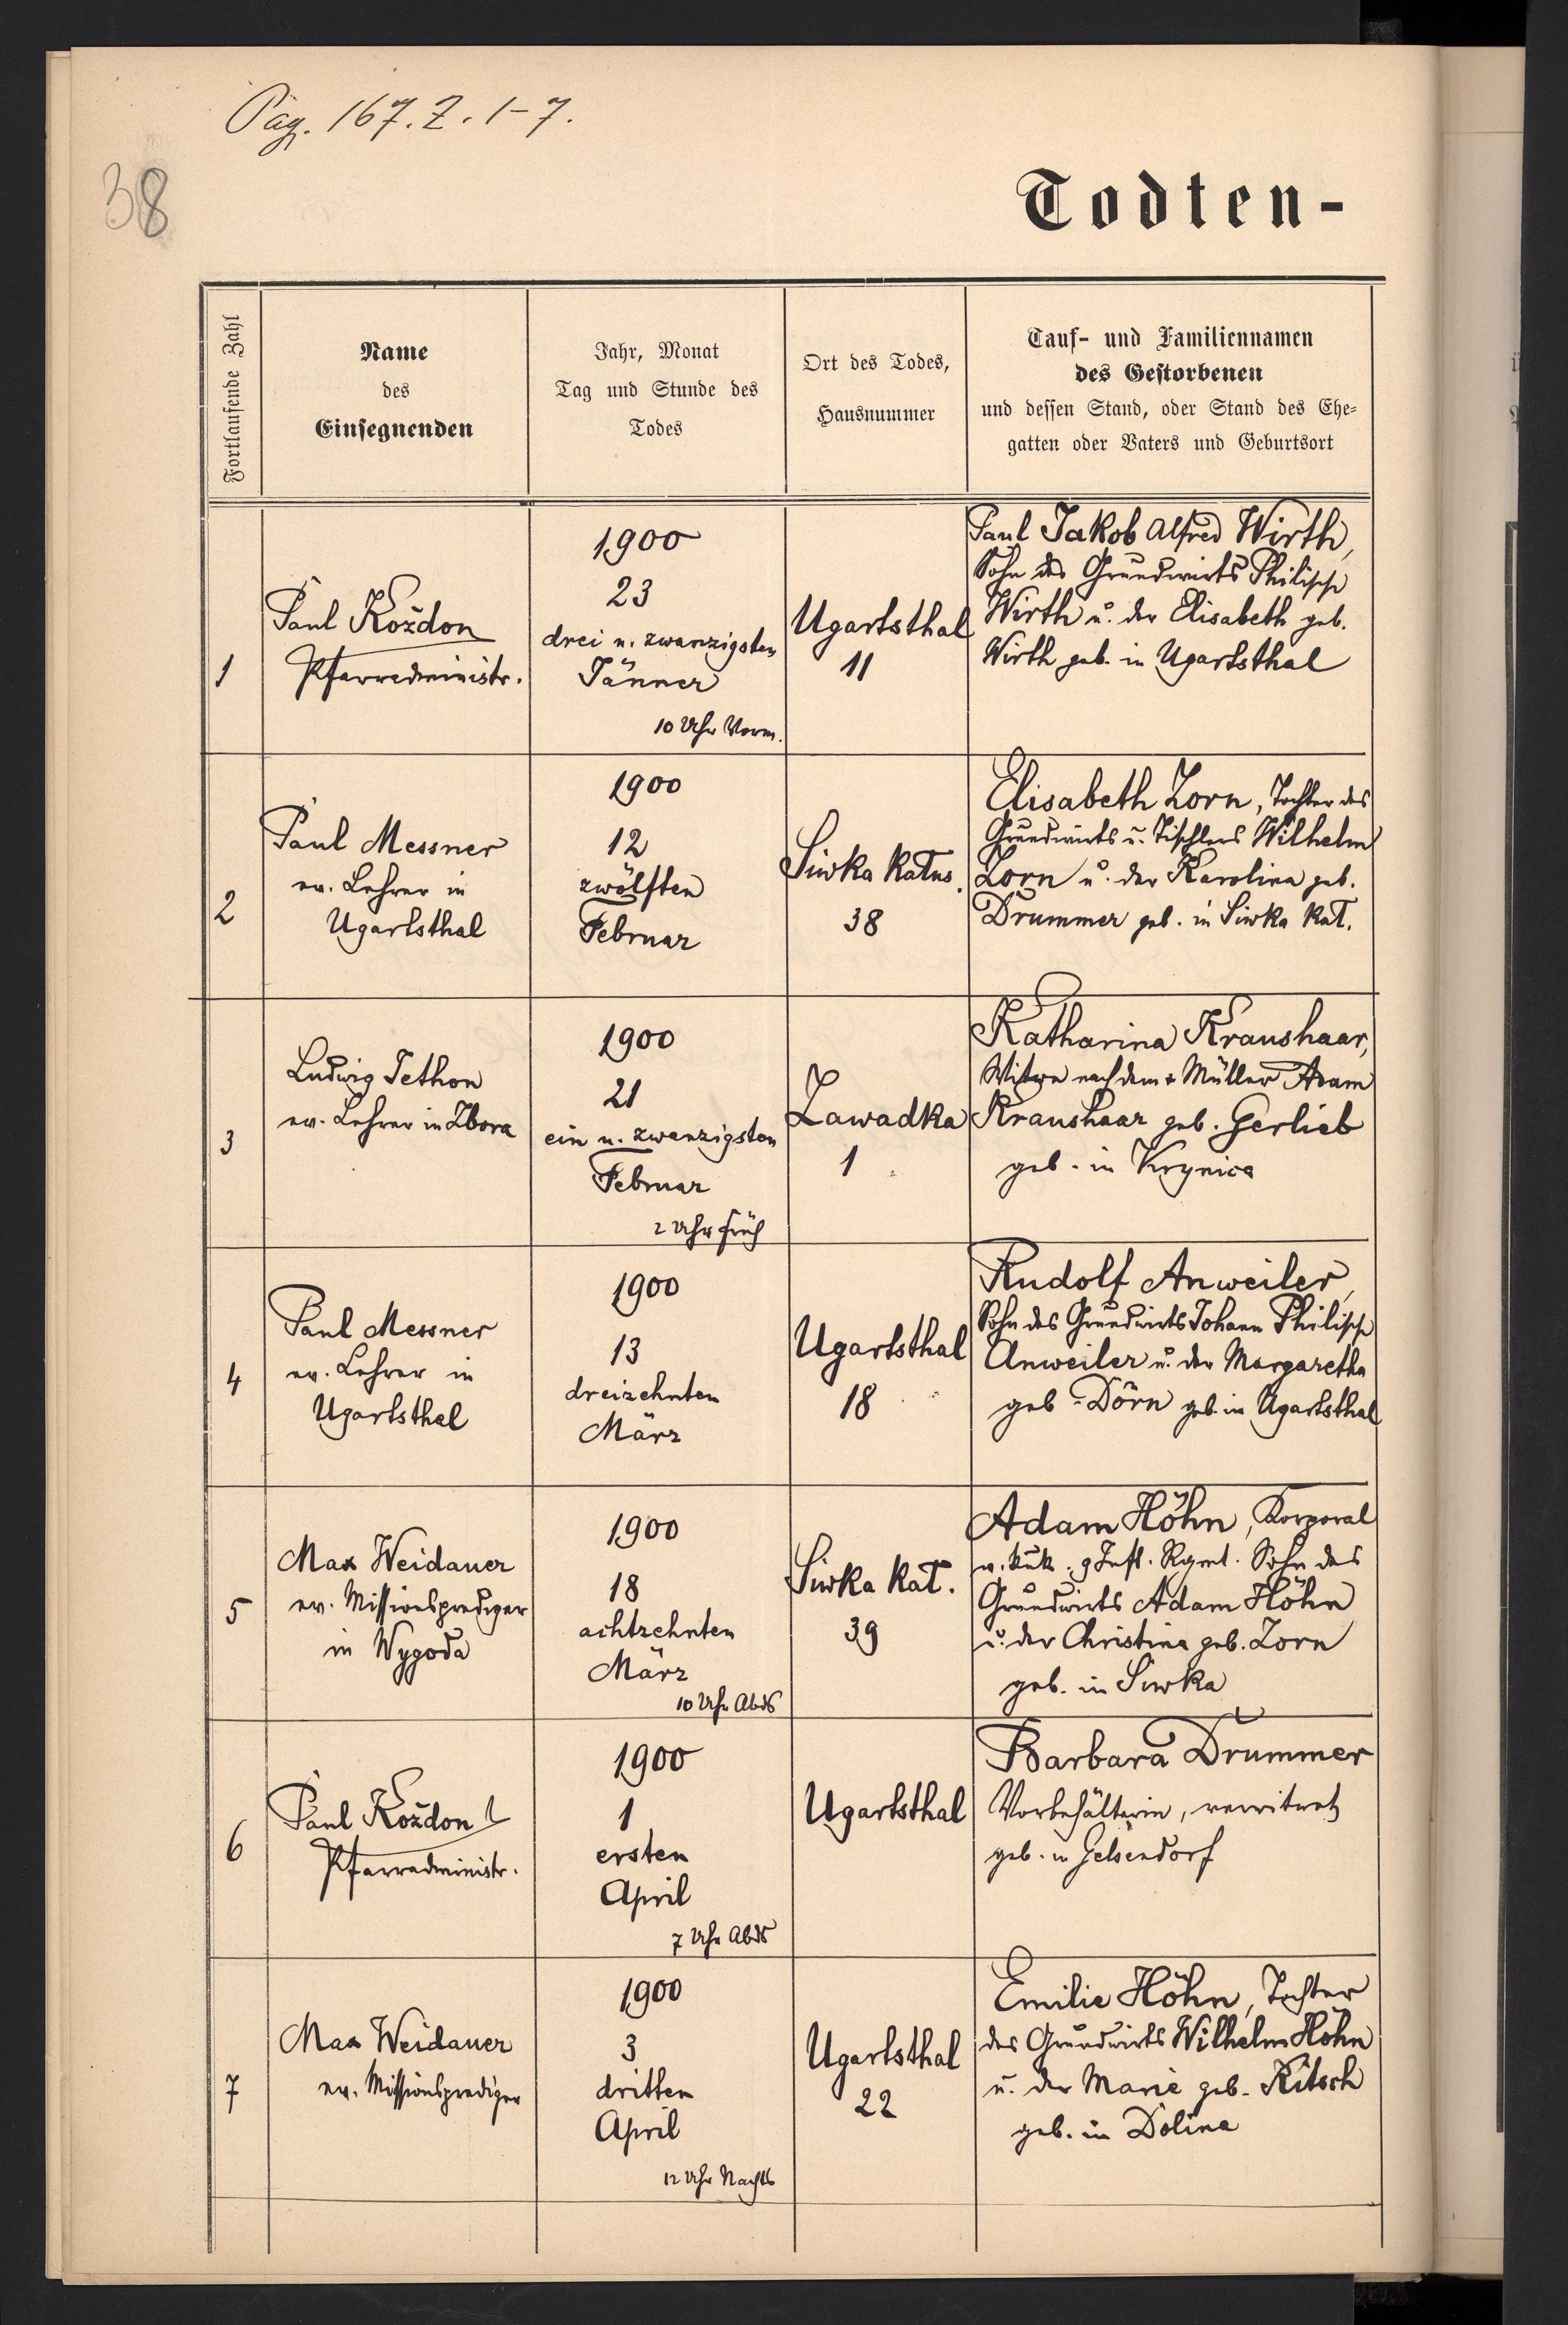 Pag. 167. Z. 1-7.
38
Todten-
Fortlaufende Zahl
Name
des
Einsegnenden
Jahr, Monat
Tag und Stunde des
Todes
Ort des Todes,
Hausnummer
Tauf- und Familiennamen
des Gestorbenen
und dessen Stand, oder Stand des Ehe-
gatten oder Vaters und Geburtsort
1
Paul Koždon
Pfarradministr.
1900
23
drei u. zwanzigsten
Jänner
10 Uhr Vorm.
Ugartsthal
11
Paul Jakob Alfred Wirth,
Sohn des Grundwirts Philipp
Wirth u. der Elisabeth geb.
Wirth geb. in Ugartsthal
2
Paul Messner
ev. Lehrer in
Ugartsthal
1900
12
zwölften
Februar
Siwka Kałus.
38
Elisabeth Zorn, Tochter des
Grundwirts u. Tischlers Wilhelm
Zorn u. der Karolina geb.
Drummer geb. in Siwka Kał.
3
Ludwig Jethon
ev. Lehrer in Zbora
1900
21
ein u. zwanzigsten
Februar
2 Uhr früh
Zawadka
1
Katharina Kraushaar,
Witwe nach dem + Müller Adam
Kraushaar geb. Gerlieb
geb. in Krynica
4
Paul Messner
ev. Lehrer in
Ugartsthal
1900
13
dreizehnten
März
Ugartsthal
18
Rudolf Anweiler,
Sohn des Grundwirts Johann Philipp
Anweiler u. der Margaretha
geb. Dörn geb. in Ugartsthal
5
Max Weidauer
ev. Missionsprediger
in Wygoda
1900
18
achtzehnten
März
10 Uhr Abds
Siwka Kał.
39
Adam Höhn, Korporal
k. 9 Inft. Rgmt. Sohn des
Grundwirts Adam Höhn
u. der Christina geb. Zorn
geb. in Siwka
6
Paul Koždon
Pfarradministr.
1900
1
ersten
April
7 Uhr Abds
Ugartsthal
Barbara Drummer
Vorbehälterin, verwitwet
geb. in Gelsendorf
7
Max Weidauer
ev. Missionsprediger
1900
3
dritten
April
12 Uhr Nachts
Ugartsthal
22
Emilie Höhn, Tochter
des Grundwirts Wilhelm Höhn
u. der Marie geb. Kitsch
geb. in Dolina